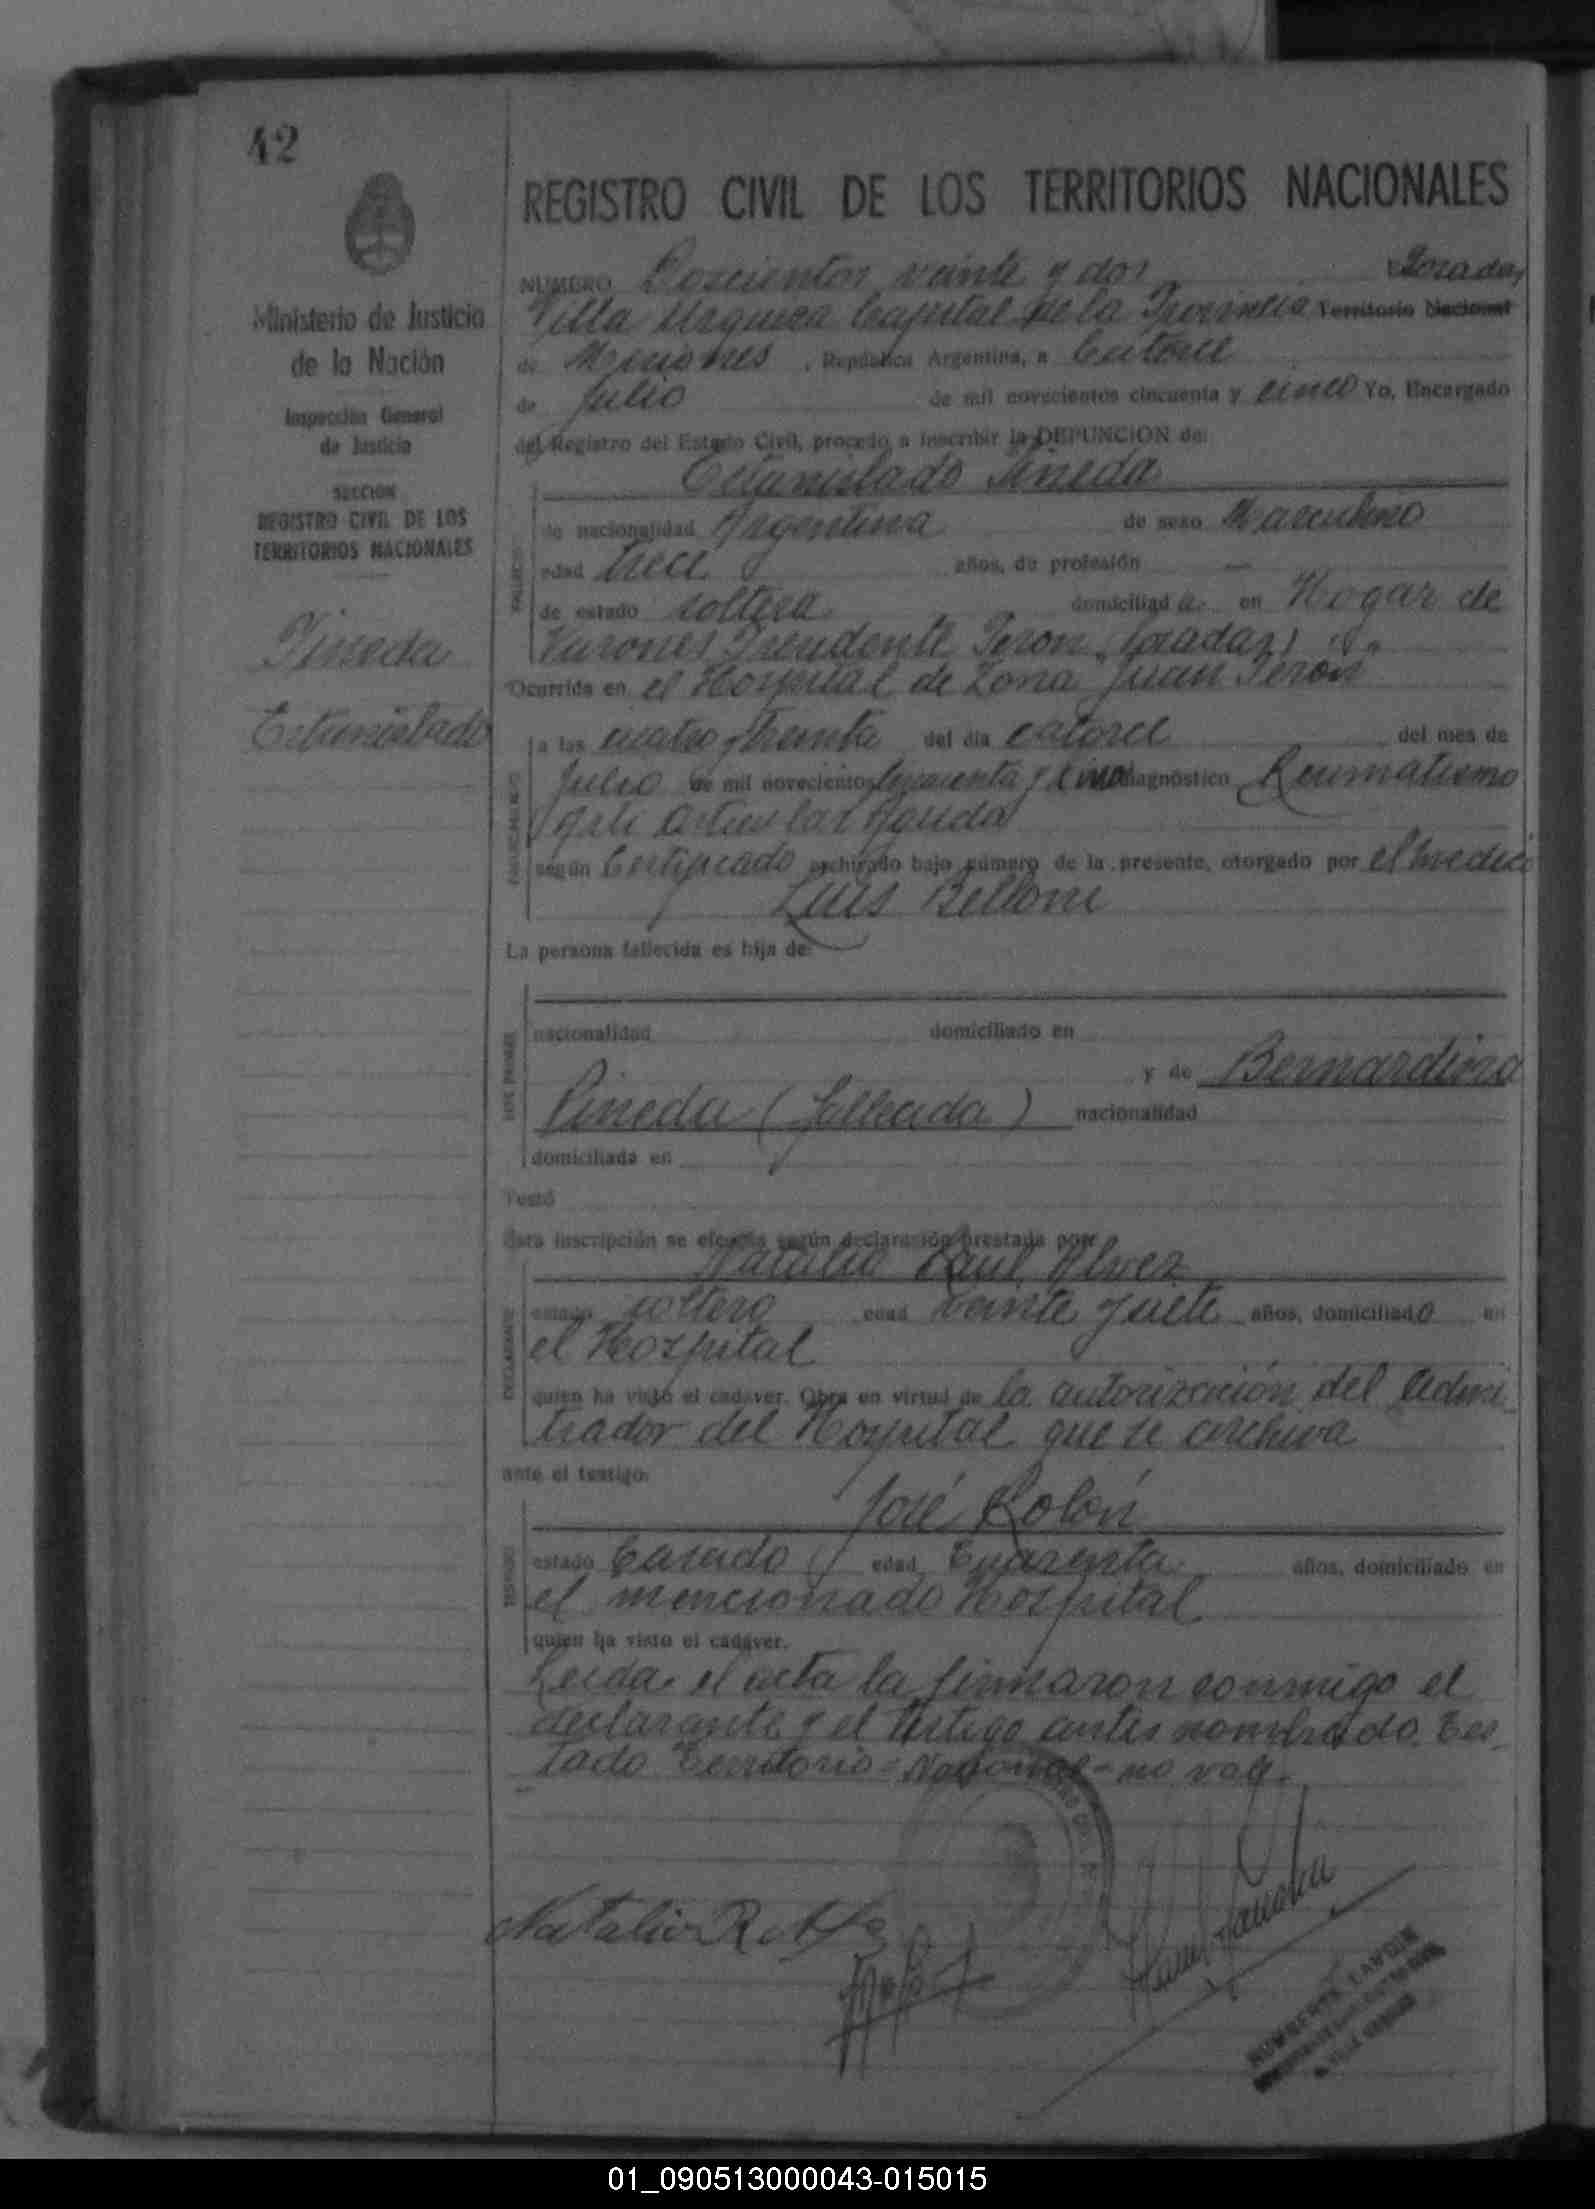 42
REGISTRO CIVIL DE LOS TERRITORIOS NACIONALES
Ministerio de Justicia
de la Nación
Inspección General
de Justicia
SECCION
REGISTRO CIVIL DE LOS
TERRITORIOS NACIONALES
Pineda
Estanislado
NUMERO Doscientos veinte y dos Posadas
Villa Urquiza Capital de la Provincia Territorio Nacional
de Misiones , República Argentina, a Catorce
de Julio de mil novecientos cincuenta y cinco Yo, Encargado
del Registro del Estado Civil, procedo a inscribir la DEFUNCION de:
Estanislado Pineda
de nacionalidad Argentina de sexo Masculino
edad trece años, de profesión —
de estado soltera domiciliad a en Hogar de
Varones Presidente Peron, Posadas
Ocurrida en el Hospital de Zona "Juan Perón"
a las cuatro y treinta del día catorce del mes de
Julio de mil novecientos cincuenta y cinco diagnóstico Reumatismo
Articular Aguda
según Certificado archivado bajo número de la presente, otorgado por el medico
Luis Belloni
La persona fallecida es hija de:
nacionalidad domiciliado en
y de Bernardina
Pineda (fallecida) nacionalidad
domiciliada en
Testó
Esta inscripción se efectúa según declaración prestada por:
Natalio Raul Alvez
estado soltero edad veinte y siete años, domiciliado en
el Hospital
quien ha visto el cadáver. Obra en virtud de la autorización del Admi-
trador del Hospital que se archiva
ante el testigo:
José Rolón
estado Casado edad Cuarenta años, domiciliado en
el mencionado Hospital
quien ha visto el cadáver.
Leida el acta la firmaron conmigo el
declarante y el testigo antes nombrado. Tes-
tado Territorio - Nacional - no vale.
Natalio R
01_090513000043-015015